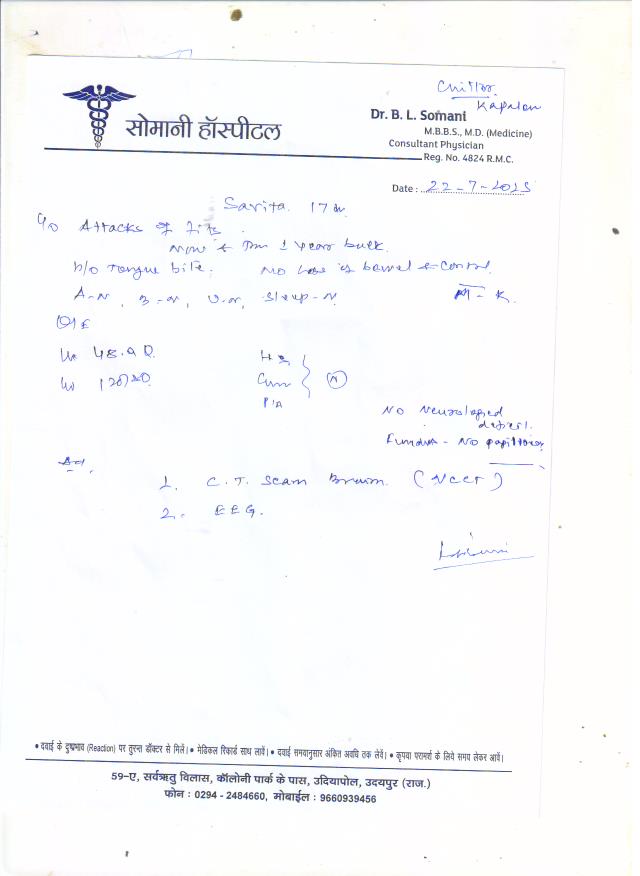 Chittor
Kapasan
सोमानी हॉस्पीटल
Dr. B. L. Somani
M.B.B.S., M.D. (Medicine)
Consultant Physician
Reg. No. 4824 R.M.C.
Date : 22-7-2025
Savita 17
C/o Attacks of fits
Now 1 year back.
h/o Tongue bite. No loss of bowel control.
A-N, B-N, U-N, Sleep-N
O/E
H
Cvm
P/A
N
No Neurological
deficit.
Fundus - No papill
Ad.
1. C.T. Scan Brain. (NCCT)
2. EEG.
• दवाई के दुष्प्रभाव (Reaction) पर तुरन्त डॉक्टर से मिलें। • मेडिकल रिकार्ड साथ लावें। • दवाई समयानुसार अंकित अवधि तक लेवें। • कृपया परामर्श के लिये समय लेकर आवें।
59-ए, सर्वऋतु विलास, कॉलोनी पार्क के पास, उदियापोल, उदयपुर (राज.)
फोन : 0294 - 2484660, मोबाईल : 9660939456